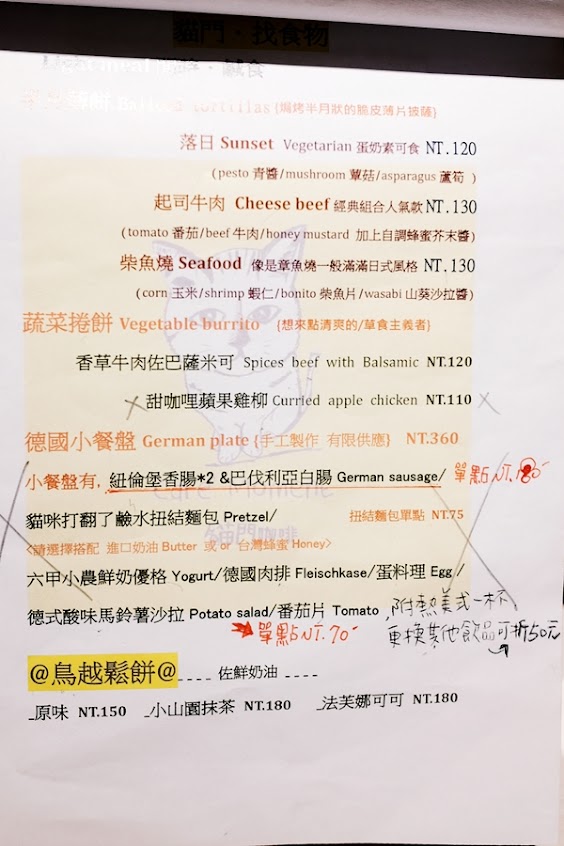 貓門·找食物
鹹食
薄餅 tortillas {焗烤半月狀的脆皮薄片披薩}
落日 Sunset Vegetarian 蛋奶素可食 NT.120
(pesto 青醬/mushroom 蕈菇/asparagus 蘆筍 )
起司牛肉 Cheese beef 經典組合人氣款 NT.130
(tomato 番茄/beef 牛肉/honey mustard 加上自調蜂蜜芥末醬)
柴魚燒 Seafood 像是章魚燒一般滿滿日式風格 NT.130
(corn 玉米/shrimp 蝦仁/bonito 柴魚片/wasabi 山葵沙拉醬)
蔬菜捲餅 Vegetable burrito {想來點清爽的/草食主義者}
香草牛肉佐巴薩米可 Spices beef with Balsamic NT.120
甜咖哩蘋果雞柳 Curried apple chicken NT.110
德國小餐盤 German plate {手工製作 有限供應} NT.360
小餐盤有, 紐倫堡香腸*2 &巴伐利亞白腸 German sausage/ 單點NT.180
貓咪打翻了鹼水扭結麵包 Pretzel/ 扭結麵包單點 NT.75
Café Moment
貓門咖啡
<請選擇搭配 進口奶油 Butter 或 or 台灣蜂蜜 Honey>
六甲小農鮮奶優格 Yogurt/德國肉排 Fleischkase/蛋料理 Egg /
德式酸味馬鈴薯沙拉 Potato salad/番茄片 Tomato 附熱美式一杯
單點NT.70 更換其他飲品可折50元
@鳥越鬆餅@ ---- 佐鮮奶油 ----
_原味 NT.150 _小山園抹茶 NT.180 _法芙娜可可 NT.180